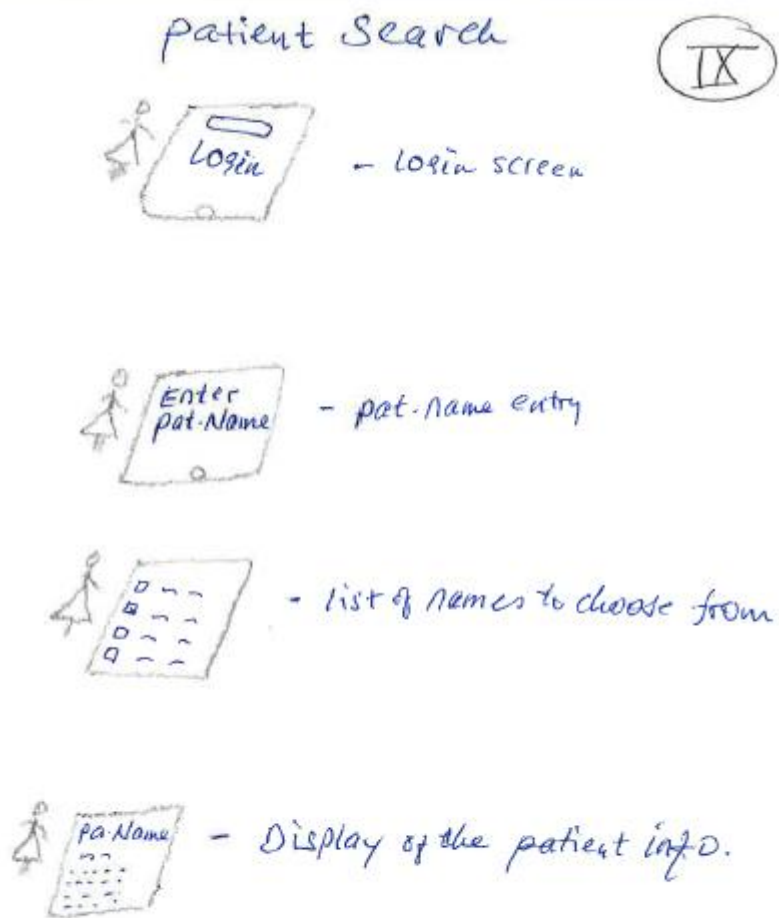 patient Search
IX
Login
- Login screen
Enter
pat.Name
- pat.name entry
- list of names to choose from
pa.Name
- Display of the patient info.